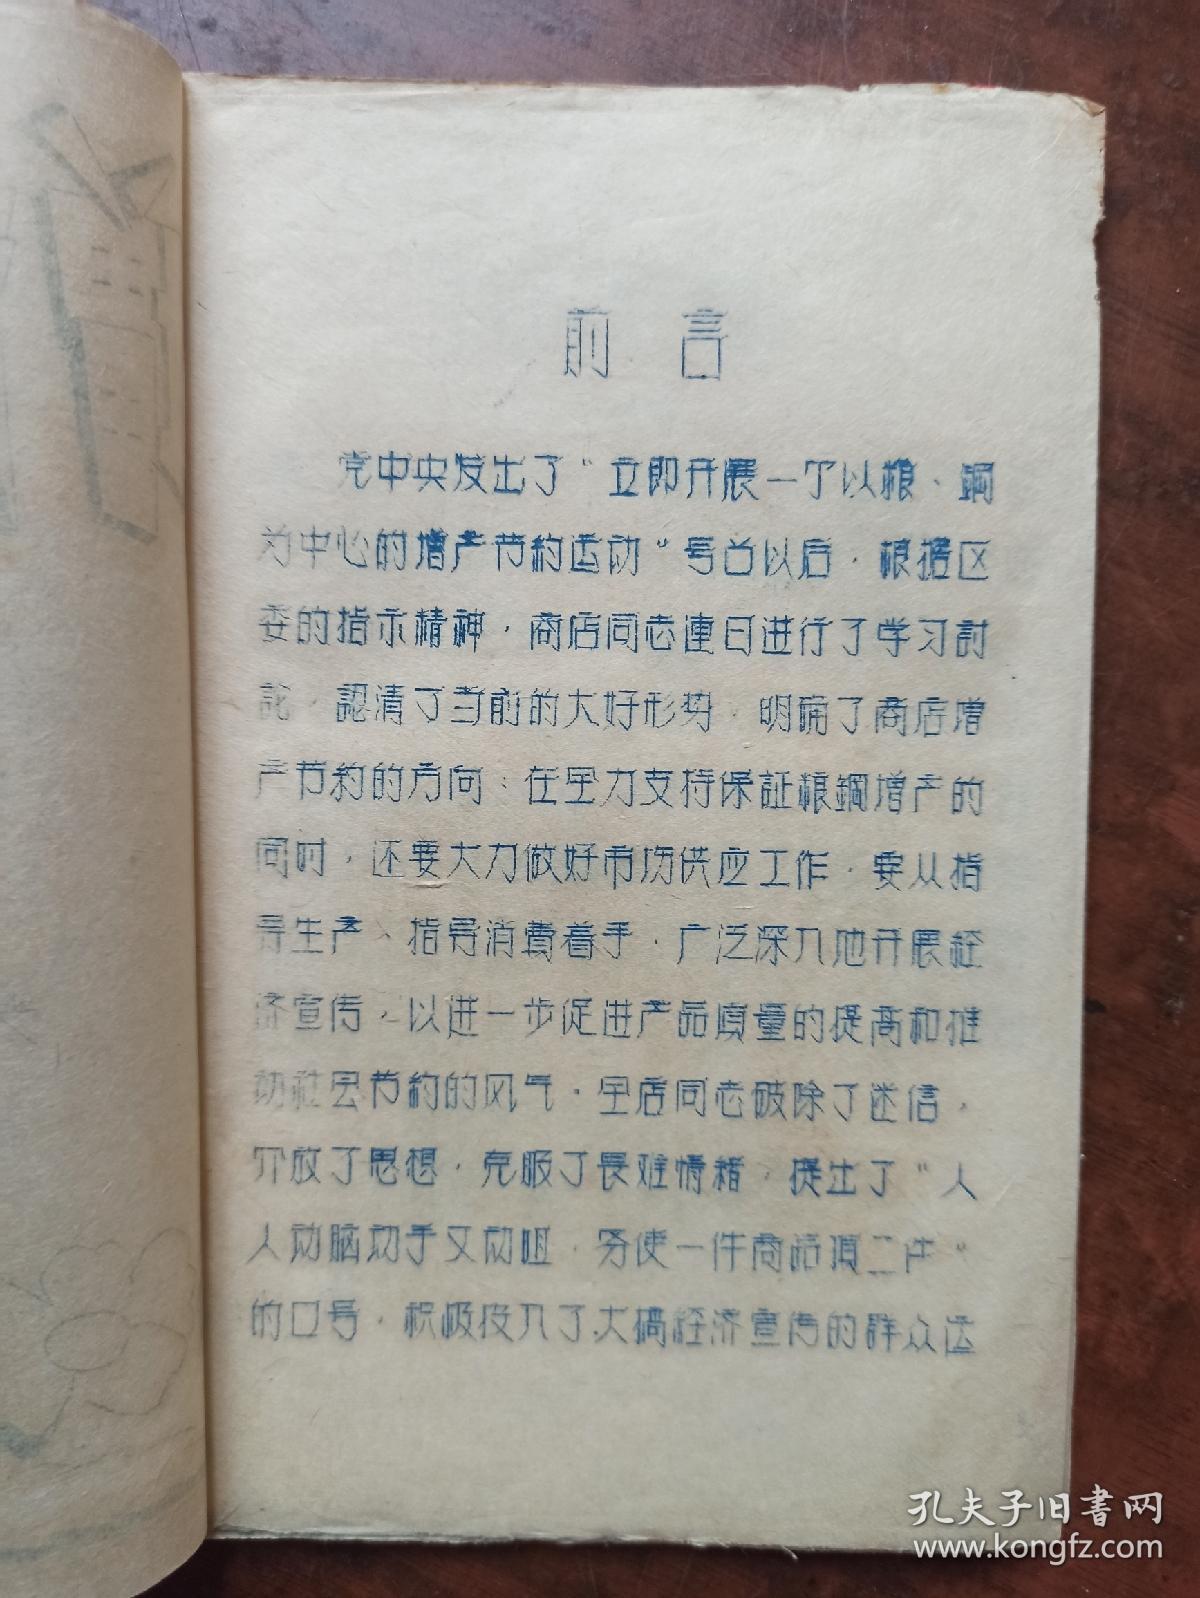 前言
党中央发出了“立即开展一个以粮、鋼
为中心的增产节约运动”号召以后，根据区
委的指示精神，商店同志連日进行了学习討
論，認清了当前的大好形势，明确了商店增
产节约的方向：在全力支持保証粮鋼增产的
同时，还要大力做好市场供应工作，要从指
导生产、指导消費着手，广泛深入地开展经
济宣传，以进一步促进产品质量的提高和推
动社会节约的风气。全店同志破除了迷信，
介放了思想，克服了畏难情绪，提出了“人
人动脑动手又动咀，务使一件商品頂二件”
的口号，积极投入了大搞经济宣传的群众运
孔夫子旧书网
www.kongfz.com